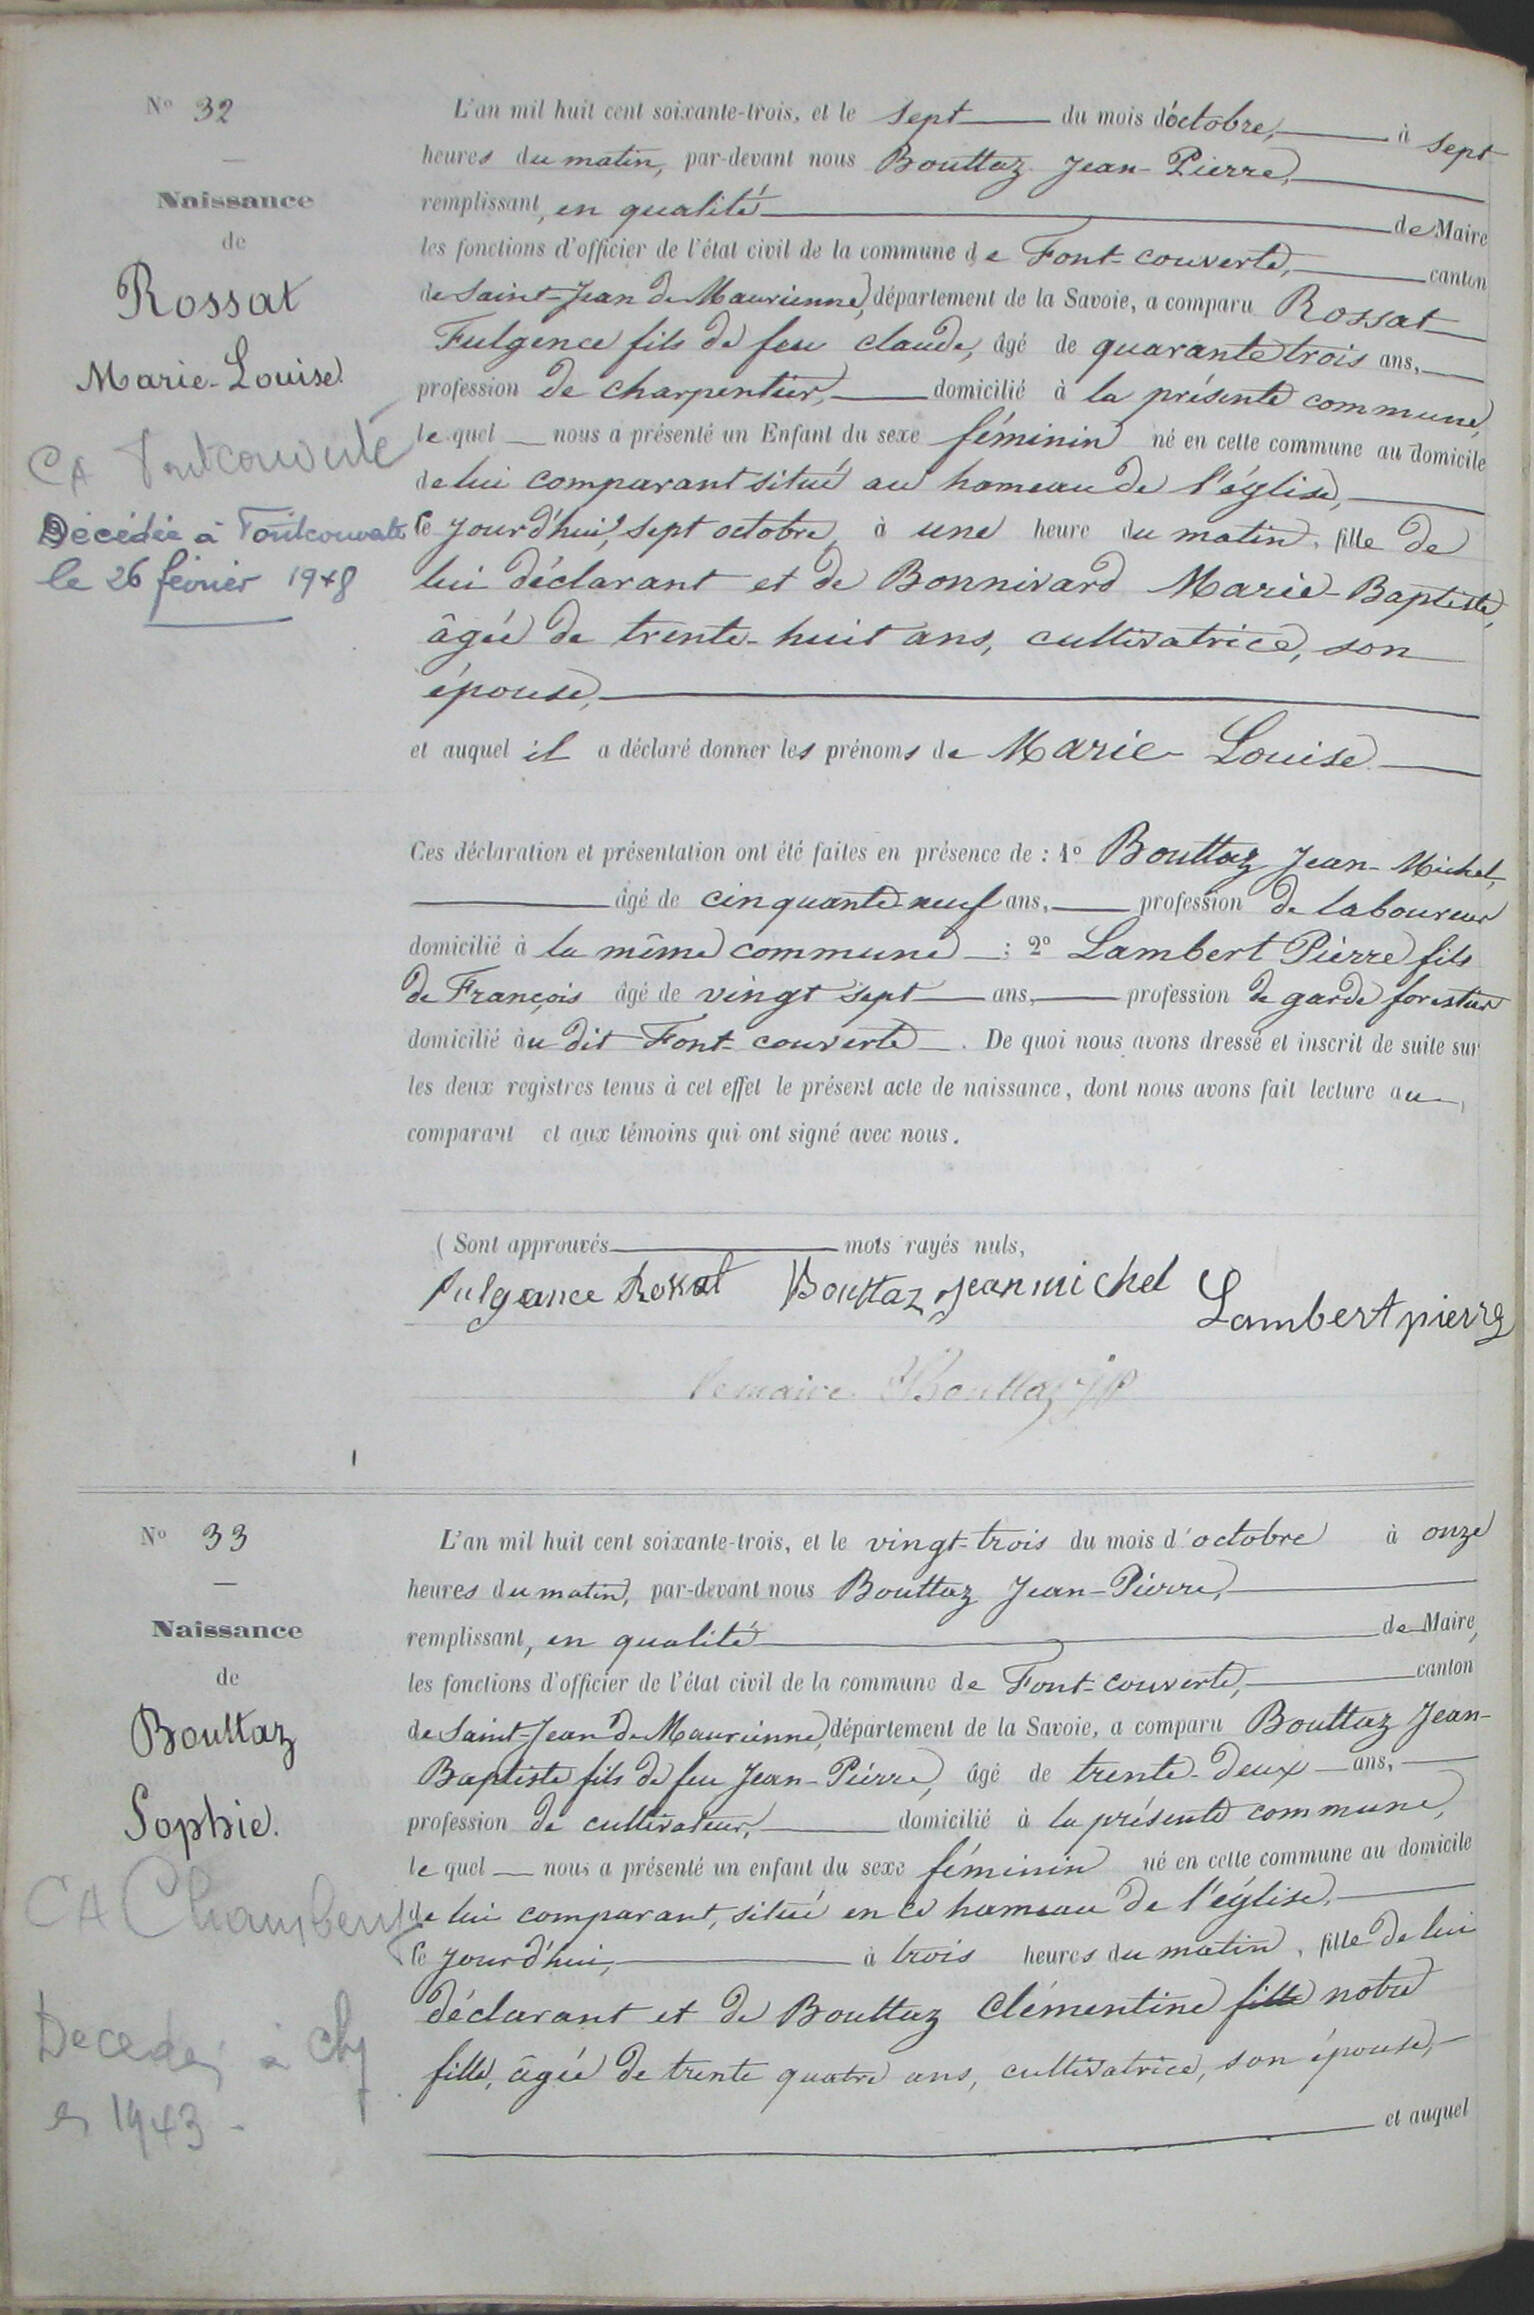 N° 32
Naissance
de
Rossat
Marie-Louise.
CA Fontcouverte
Décédée à Fontcouverte
le 26 février 1948
L'an mil huit cent soixante-trois, et le sept du mois d'octobre, à sept
heures du matin, par-devant nous Bouttaz Jean-Pierre,
remplissant, en qualité de Maire
les fonctions d'officier de l'état civil de la commune de Font-couverte, canton
de Saint-Jean de Maurienne, département de la Savoie, a comparu Rossat
Fulgence fils de feu claude, âgé de quarante trois ans,
profession de charpentier, domicilié à la présente commune,
le quel nous a présenté un Enfant du sexe féminin né en cette commune au domicile
de lui comparant situé au hameau de l'église,
ce jourd'hui, sept octobre, à une heure du matin, fille de
lui déclarant et de Bonnivard Marie-Baptiste,
âgée de trente-huit ans, cultivatrice, son
épouse,
et auquel il a déclaré donner les prénoms de Marie-Louise
Ces déclaration et présentation ont été faites en présence de : 1° Bouttaz Jean-Michel,
âgé de cinquante-neuf ans, profession de laboureur
domicilié à la même commune ; 2° Lambert Pierre fils
de François âgé de vingt sept ans, profession de garde forestier
domicilié au dit Font-couverte. De quoi nous avons dressé et inscrit de suite sur
les deux registres tenus à cet effet le présent acte de naissance, dont nous avons fait lecture au
comparant et aux témoins qui ont signé avec nous.
( Sont approuvés mots rayés nuls,
fulgence Rossat Bouttaz jean michel Lambert pierre
le maire Bouttaz JP
N° 33
Naissance
de
Bouttaz
Sophie.
CA Chambery
Decedee à Chy
en 1943 -
L'an mil huit cent soixante-trois, et le vingt-trois du mois d'octobre à onze
heures du matin, par-devant nous Bouttaz Jean-Pierre,
remplissant, en qualité de Maire,
les fonctions d'officier de l'état civil de la commune de Font-couverte, canton
de Saint-Jean de Maurienne, département de la Savoie, a comparu Bouttaz Jean-
Baptiste fils de feu Jean-Pierre, âgé de trente-deux ans,
profession de cultivateur, domicilié à la présente commune,
le quel nous a présenté un enfant du sexe féminin né en cette commune au domicile
de lui comparant, situé en ce hameau de l'église,
ce jourd'hui, à trois heures du matin, fille de lui
déclarant et de Bouttaz Clémentine fille notre
fille, âgée de trente quatre ans, cultivatrice, son épouse,
et auquel